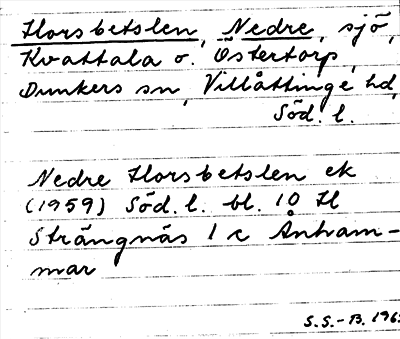 Horsbetslen, Nedre, sjö,
Kvattala o. Östertorp,
Dunkers sn, Villåttinge hd,
Söd. l.
Nedre Horsbetslen ek
(1959) Söd. l. bl. 10 H
Strängnäs 1 c Ånham-
mar
S.S.-B. 196